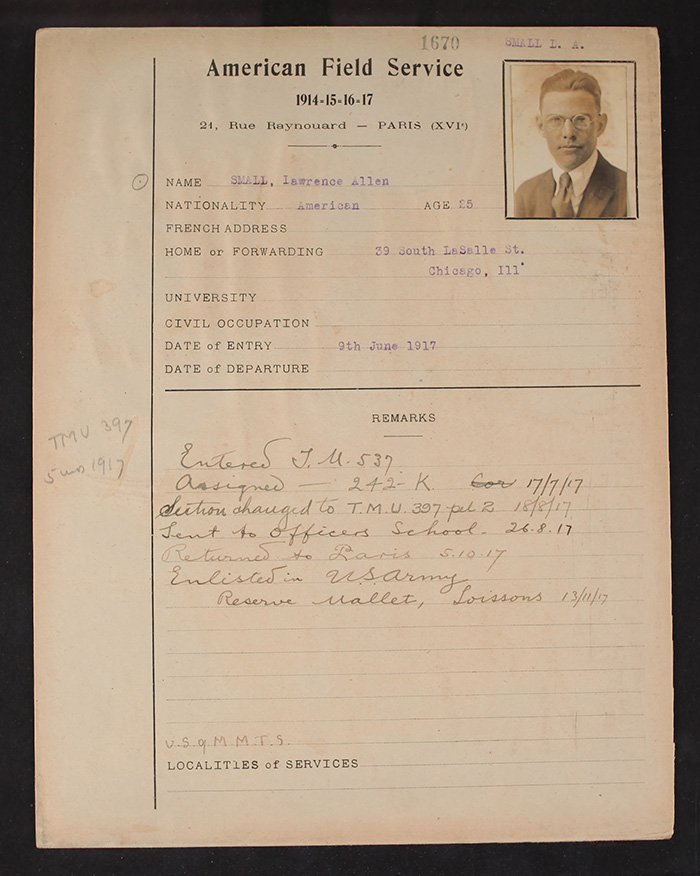 1670
SMALL L. A.
American Field Service
1914-15-16-17
21, Rue Raynouard — PARIS (XVIe)
NAME SMALL, Lawrence Allen
NATIONALITY American AGE 25
FRENCH ADDRESS
HOME or FORWARDING 39 South LaSalle St.
Chicago, Ill
UNIVERSITY
CIVIL OCCUPATION
DATE of ENTRY 9th June 1917
DATE of DEPARTURE
REMARKS
TMU 397
5 mos 1917
Entered T. M. 537
Assigned — 242-K. 17/7/17
Section changed to T.M.U. 397 pel 2 18/8/17
Sent to Officers School - 26.8.17
Returned to Paris 5.10.17
Enlisted in U.S. Army
Reserve Mallet, Soissons 13/11/17
U.S.Q M.M.T.S.
LOCALITIES of SERVICES